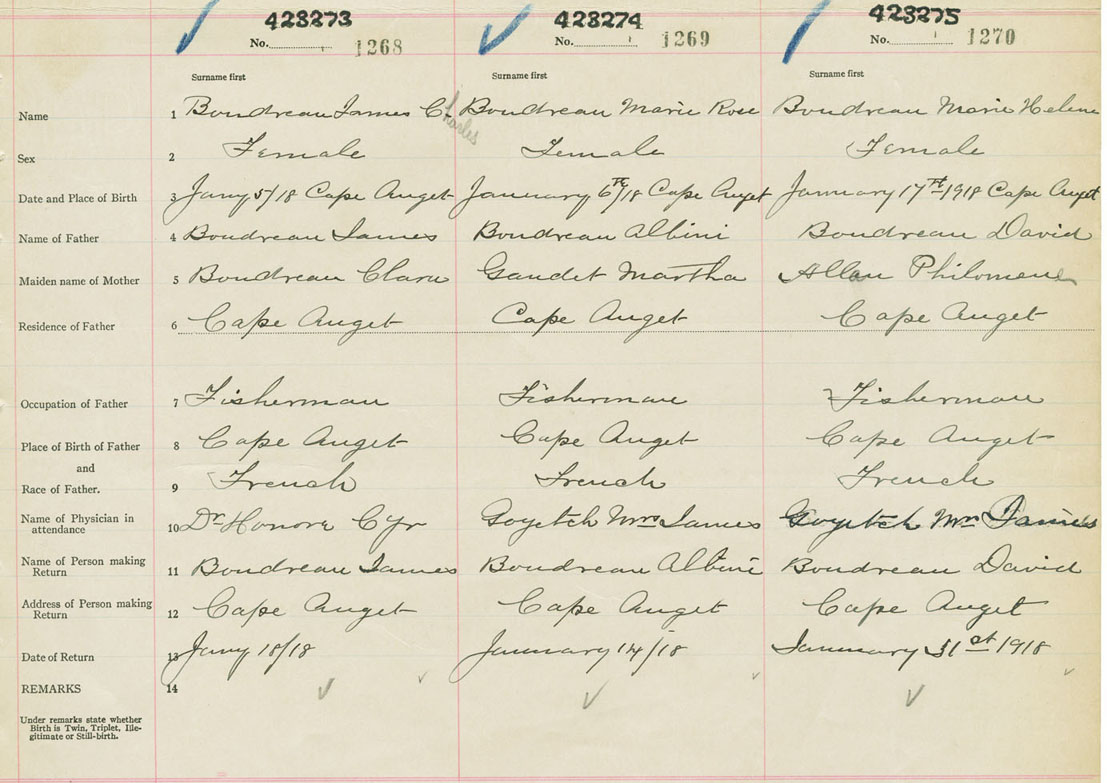 428273 428274 428275
No. 1268 No. 1269 No. 1270
Surname first Surname first Surname first
Name 1 Boudreau James C. Charles Boudreau Marie Rose Boudreau Marie Helene
Sex 2 Female Female Female
Date and Place of Birth 3 Jany 5/18 Cape Auget January 6th/18 Cape Auget January 17th 1918 Cape Auget
Name of Father 4 Boudreau James Boudreau Albini Boudreau David
Maiden name of Mother 5 Boudreau Clara Gaudet Martha Allan Philomene
Residence of Father 6 Cape Auget Cape Auget Cape Auget
Occupation of Father 7 Fisherman Fisherman Fisherman
Place of Birth of Father 8 Cape Auget Cape Auget Cape Auget
and
Race of Father. 9 French French French
Name of Physician in
attendance 10 Dr Honore Cyr Goyetch Mrs James Goyetch Mrs James
Name of Person making
Return 11 Boudreau James Boudreau Albini Boudreau David
Address of Person making
Return 12 Cape Auget Cape Auget Cape Auget
Date of Return 13 Jany 18/18 January 14/18 January 31st 1918
REMARKS 14
Under remarks state whether
Birth is Twin, Triplet, Ille-
gitimate or Still-birth.